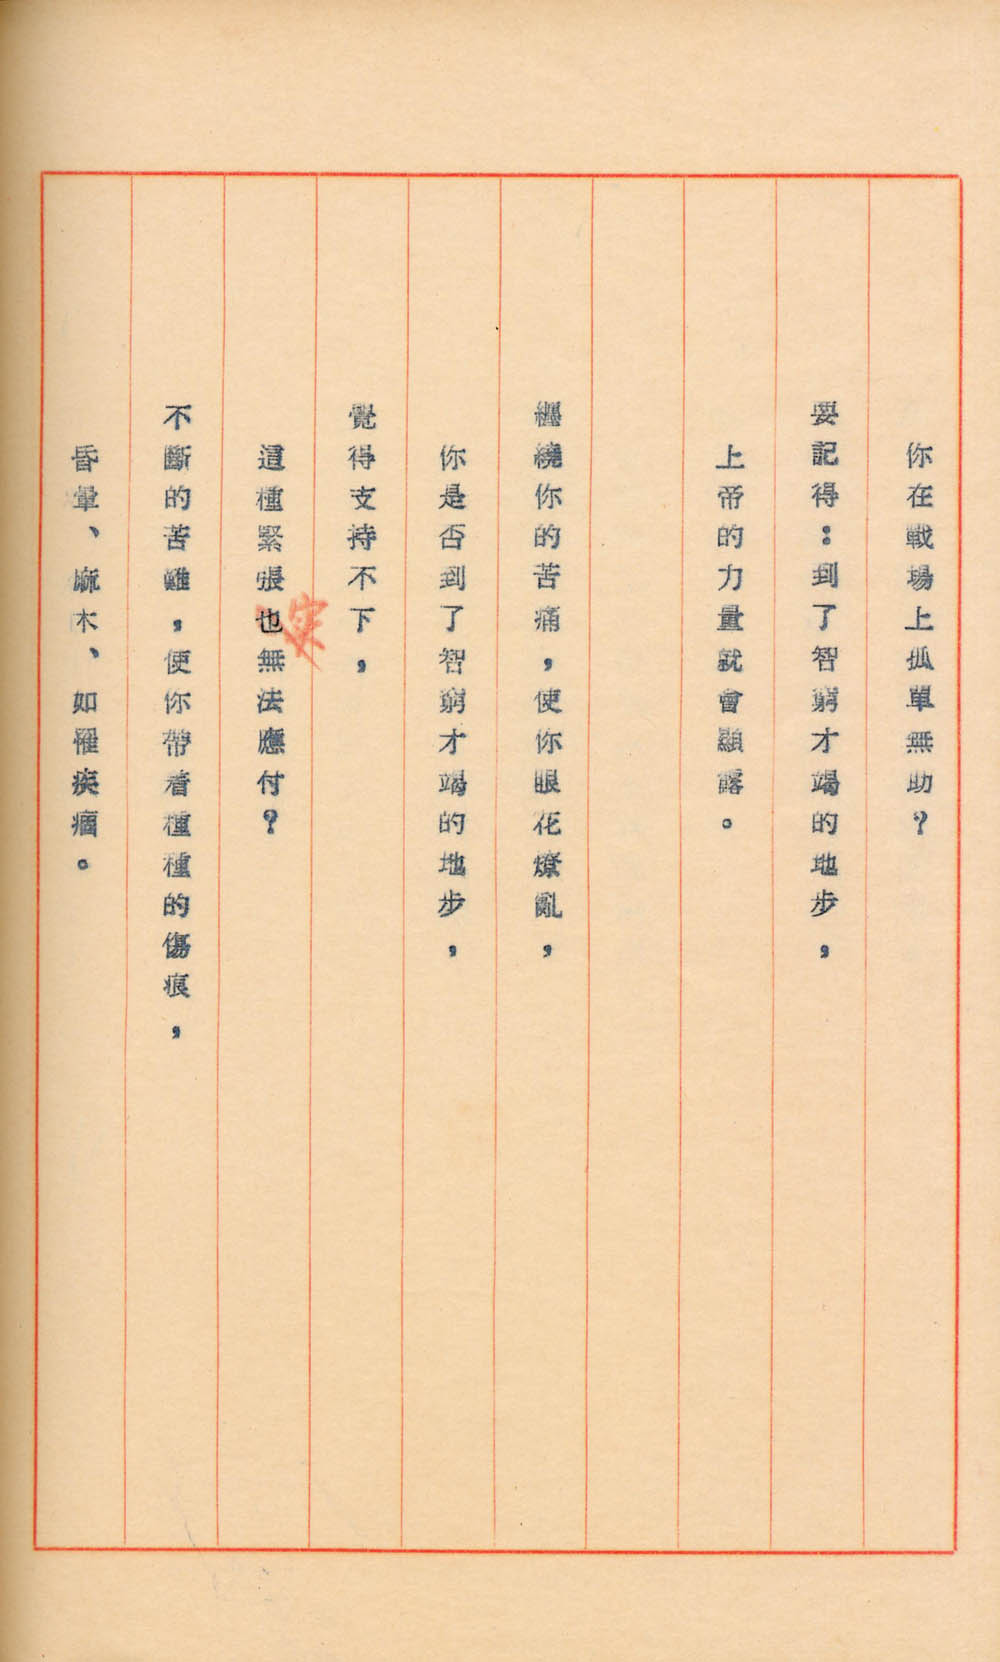 你在戰場上孤單無助？
要記得：到了智窮才竭的地步，
上帝的力量就會顯露。
纏繞你的苦痛，使你眼花繚亂，
你是否到了智窮才竭的地步，
覺得支持不下，
這種緊張也無法應付？
不斷的苦難，使你帶着種種的傷痕，
昏暈、麻木、如罹疾痼。